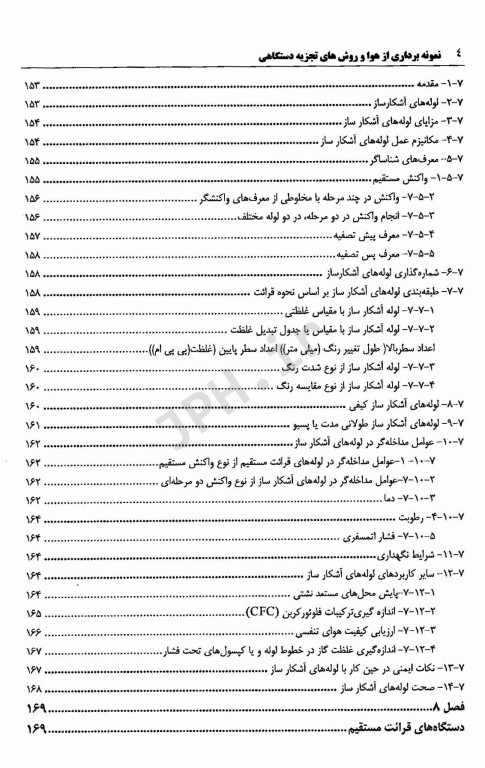 ۴ نمونه برداری از هوا و روش های تجزیه دستگاهی
۷-۱- مقدمه ۱۵۳
۷-۲- لوله‌های آشکارساز ۱۵۳
۷-۳- مزایای لوله‌های آشکار ساز ۱۵۴
۷-۴- مکانیزم عمل لوله‌های آشکار ساز ۱۵۴
۷-۵- معرف‌های شناساگر ۱۵۵
۷-۵-۱- واکنش مستقیم ۱۵۵
۷-۵-۲- واکنش در چند مرحله با مخلوطی از معرف‌های واکنشگر ۱۵۶
۷-۵-۳- انجام واکنش در دو مرحله، در دو لوله مختلف ۱۵۶
۷-۵-۴- معرف پیش تصفیه ۱۵۷
۷-۵-۵- معرف پس تصفیه ۱۵۸
۷-۶- شماره‌گذاری لوله‌های آشکارساز ۱۵۸
۷-۷- طبقه‌بندی لوله‌های آشکار ساز بر اساس نحوه قرائت ۱۵۸
۷-۷-۱- لوله آشکار ساز با مقیاس غلظتی ۱۵۹
۷-۷-۲- لوله آشکار ساز با مقیاس یا جدول تبدیل غلظت ۱۵۹
اعداد سطربالا( طول تغییر رنگ (میلی متر)) اعداد سطر پایین (غلظت(پی پی ام)) ۱۵۹
۷-۷-۳- لوله آشکار ساز از نوع شدت رنگ ۱۶۰
۷-۷-۴- لوله آشکار ساز از نوع مقایسه رنگ ۱۶۰
۷-۸- لوله‌های آشکار ساز کیفی ۱۶۰
۷-۹- لوله‌های آشکار ساز طولانی مدت یا پسیو ۱۶۱
۷-۱۰- عوامل مداخله‌گر در لوله‌های آشکار ساز ۱۶۲
۷-۱۰- ۱-عوامل مداخله‌گر در لوله‌های قرائت مستقیم از نوع واکنش مستقیم ۱۶۲
۷-۱۰-۲-عوامل مداخله‌گر در لوله‌های آشکار ساز از نوع واکنش دو مرحله‌ای ۱۶۲
۷-۱۰-۳- دما ۱۶۲
۷-۱۰-۴- رطوبت ۱۶۴
۷-۱۰-۵- فشار اتمسفری ۱۶۴
۷-۱۱- شرایط نگهداری ۱۶۴
۷-۱۲- سایر کاربردهای لوله‌های آشکار ساز ۱۶۴
۷-۱۲-۱-پایش محل‌های مستعد نشتی ۱۶۴
۷-۱۲-۲- اندازه گیری‌ترکیبات فلوئورکربن (CFC) ۱۶۵
۷-۱۲-۳- ارزیابی کیفیت هوای تنفسی ۱۶۶
۷-۱۲-۴- اندازه‌گیری غلظت گاز در خطوط لوله و یا کپسول‌های تحت فشار ۱۶۷
۷-۱۳- نکات ایمنی در حین کار با لوله‌های آشکار ساز ۱۶۷
۷-۱۴- صحت لوله‌های آشکار ساز ۱۶۸
فصل ۸ ۱۶۹
دستگاه‌های قرائت مستقیم ۱۶۹
JPH.ir